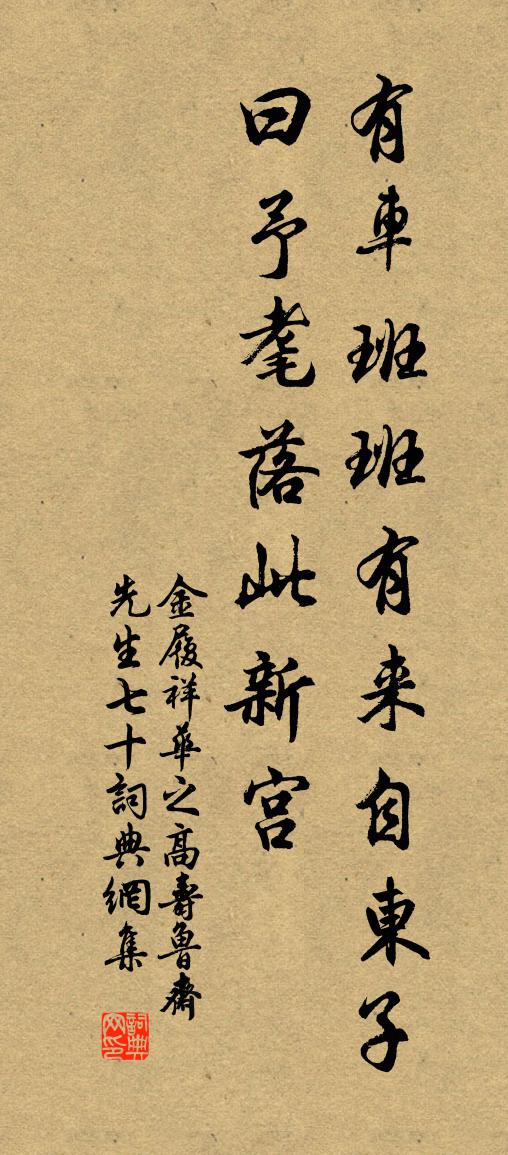 有車班班有来自東子
曰予耄落此新宮
金履祥華之高壽魯齋
先生七十詞典網集
詞典網印